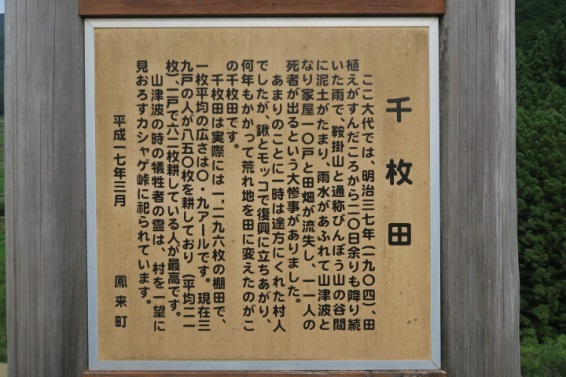 千枚田
ここ大代では、明治三七年（一九〇四）、田
植えがすんだころから二〇日余りも降り続
いた雨で、鞍掛山と通称びんぼう山の谷間
に泥土がたまり、雨水があふれて山津波と
なり家屋一〇戸と田畑が流失し、一一人の
死者が出るという大惨事がありました。
あまりのことに一時は途方にくれた村人
でしたが、鍬とモッコで復興に立ちあがり、
何年もかかって荒れ地を田に変えたのがこ
の千枚田です。
千枚田は実際には一、二九六枚の棚田で、
一枚平均の広さは〇・九アールです。現在三
九戸の人が八五〇枚を耕しており（平均二一
枚）、一戸で六二枚耕している人が最高です。
山津波の時の犠牲者の霊は、村を一望に
見おろすカシャゲ峠に祀られています。
平成一七年三月　鳳来町